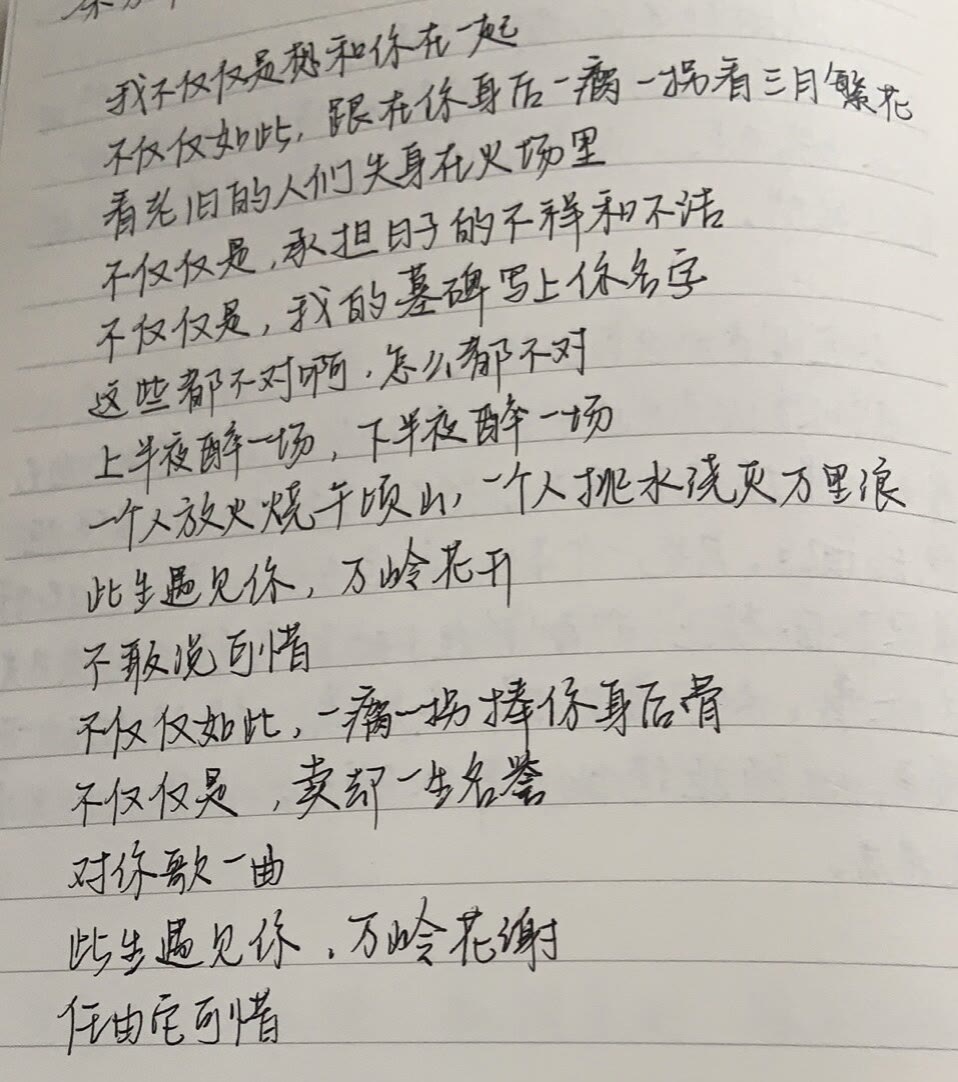 我不仅仅是想和你在一起
不仅仅如此，跟在你身后一瘸一拐看三月繁花
看老旧的人们失身在火场里
不仅仅是，承担日子的不祥和不洁
不仅仅是，我的墓碑写上你名字
这些都不对啊，怎么都不对
上半夜醉一场，下半夜醉一场
一个人放火烧千顷山，一个人挑水浇灭万里浪
此生遇见你，万岭花开
不敢说可惜
不仅仅如此，一瘸一拐捧你身后骨
不仅仅是，卖却一生名誉
对你歌一曲
此生遇见你，万岭花谢
任由它可惜